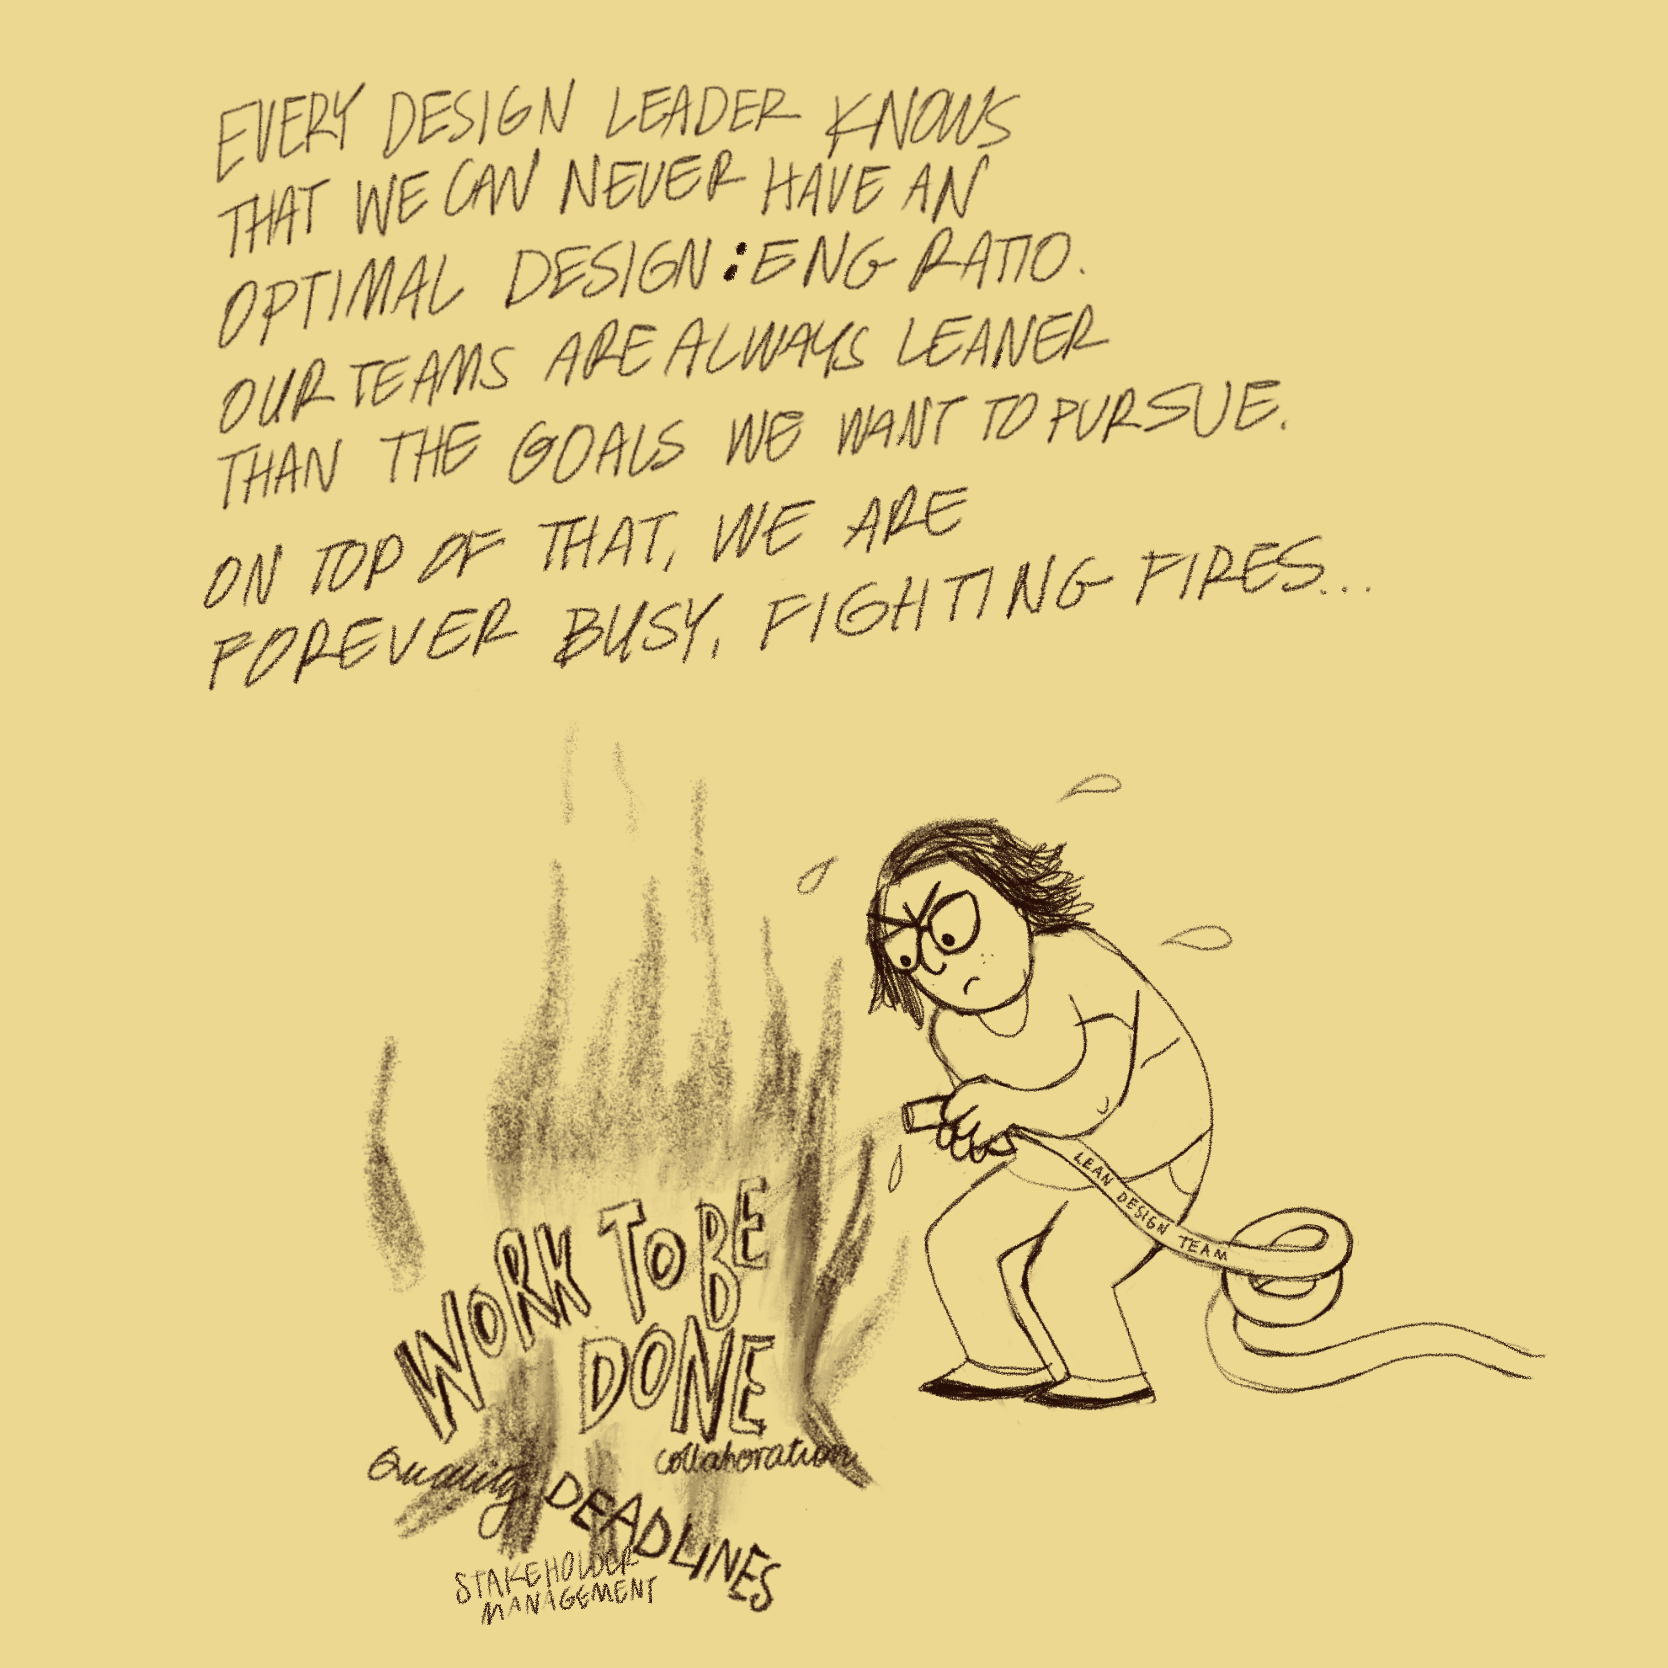 EVERY DESIGN LEADER KNOWS
THAT WE CAN NEVER HAVE AN
OPTIMAL DESIGN:ENG RATIO.
OUR TEAMS ARE ALWAYS LEANER
THAN THE GOALS WE WANT TO PURSUE.
ON TOP OF THAT, WE ARE
FOREVER BUSY, FIGHTING FIRES...
LEAN DESIGN TEAM
WORK TO BE
DONE
Quality
collaboration
DEADLINES
STAKEHOLDER
MANAGEMENT